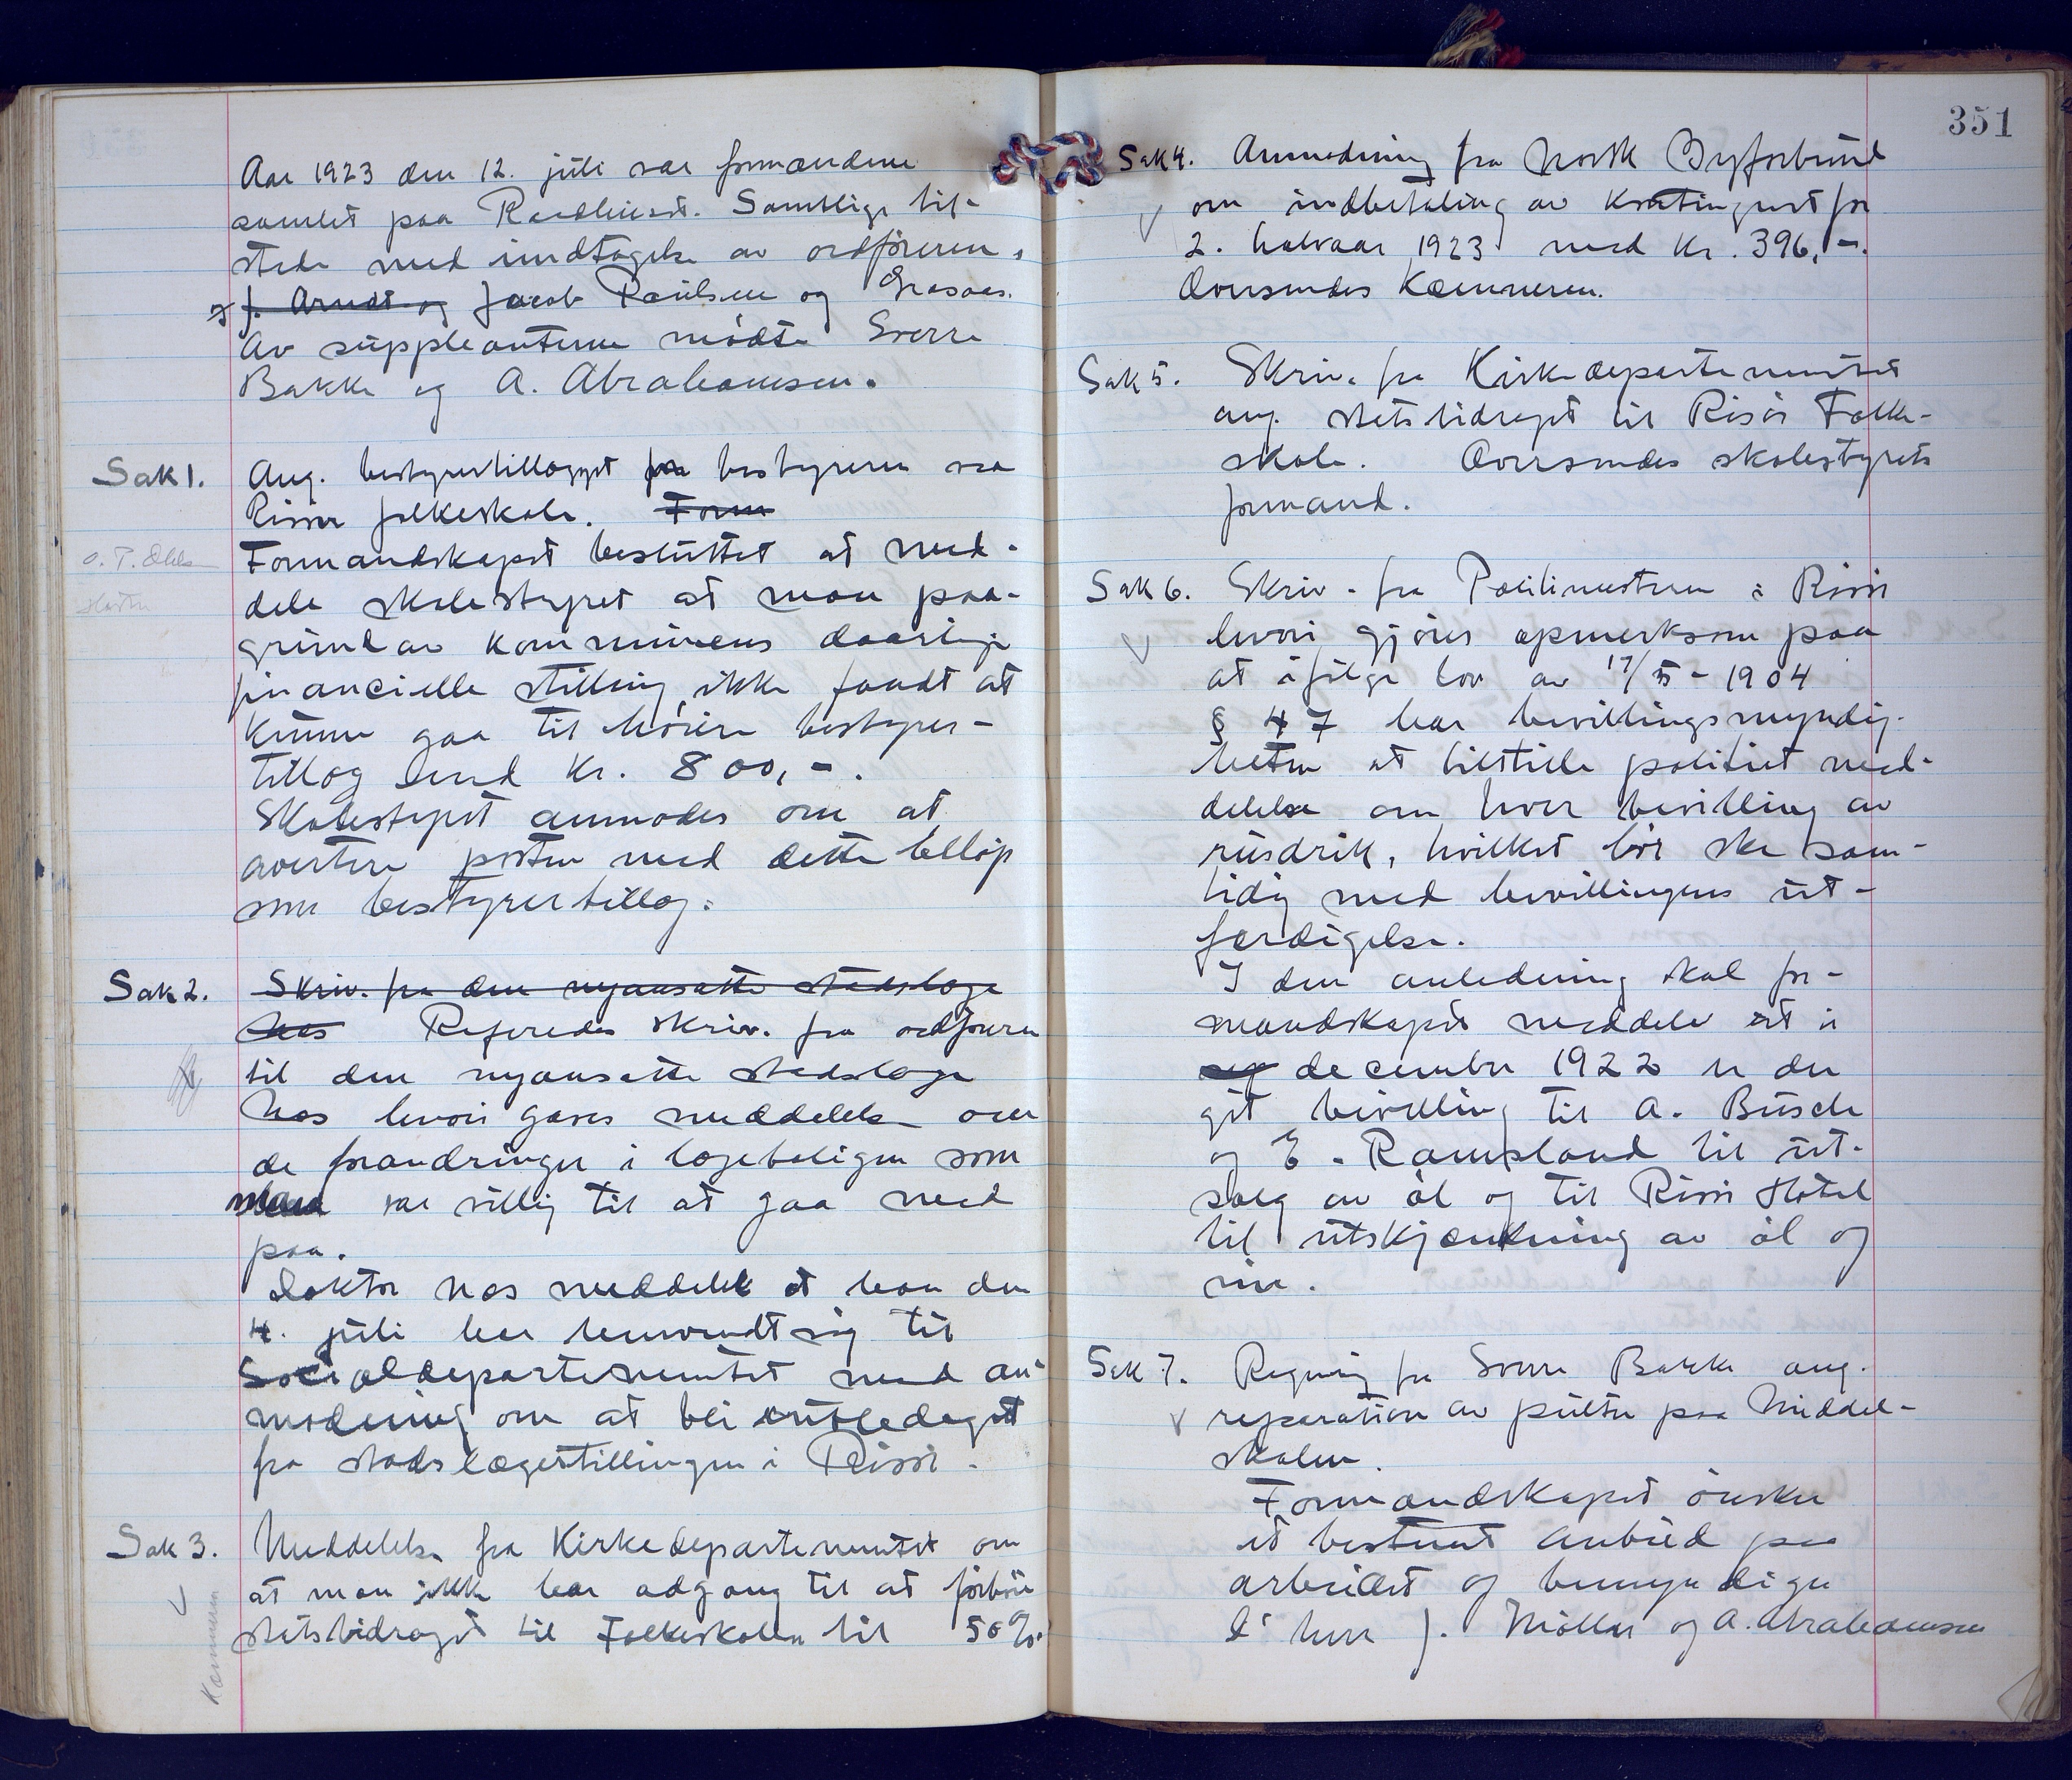 Aar 1923 den 12. juli var formændene
samlet paa Raadhuset. Samtlige til-
stede med undtagelse av ordføreren,
J. Arndt og Jacob Paulsen og Grasaas.
Av suppleantene mødte Sverre
Bakke og A. Abrahamsen.
Sak 1. Ang. bestyrertillægget for bestyreren ved
Risør folkeskole. Form
O. T. Olsen
Formandskapet besluttet at med-
dele skolestyret at man paa-
grund av kommunens daarlige
financielle stilling ikke fandt at
kunne gaa til høiere bestyrer-
tillæg end kr. 800,-.
Skolestyret anmodes om at
avertere posten med dette beløp
som bestyrertillæg.
Sak 2. Skriv. fra den nyansatte stadslæge
Næs Referedes skriv. fra ordføreren
til den nyansatte stadslæge
Næs hvori gaves meddelelse om
de forandringer i lægeboligen som
man var villig til at gaa med
paa.
Doktor Næs meddelte at han den
4. juli har henvendt sig til
Socialdepartementet med an-
modning om at bli entlediget
fra stadslægestillingen i Risør.
Sak 3. Meddelelse fra Kirkedepartementet om
at man ikke har adgang til at forhøie
statsbidraget til Folkeskolen til 50%.
Kæmneren
351
Sak 4. Anmodning fra Norsk Byforbund
om indbetaling av kontingent for
2. halvaar 1923 med kr. 396,-.
Oversendes Kæmneren.
Sak 5. Skriv. fra Kirkedepartementet
ang. statsbidraget til Risør Folke-
skole. Oversendes skolestyrets
formand.
Sak 6. Skriv. fra Politimesteren i Risør
hvori gjøres opmerksom paa
at ifølge lov av 17/5-1904
§ 47 har bevillingsmyndig-
heten at tilstille politiet med-
delelse om hver bevilling av
rusdrik, hvilket bør ske sam-
tidig med bevillingens ut-
færdigelse.
I den anledning skal for-
mandskapet meddele at i
december 1922 er der
git bevilling til A. Busch
og E. Ramsland til ut-
salg av øl og til Risør Hotel
til utskjænkning av øl og
vin.
Sak 7. Regning fra Sverre Bakke ang.
reparation av pulter paa Middel-
skolen.
Formandskapet ønsker
et bestemt anbud paa
arbeidet og bemyndiger
d' herr J. Møller og A. Abrahamsen